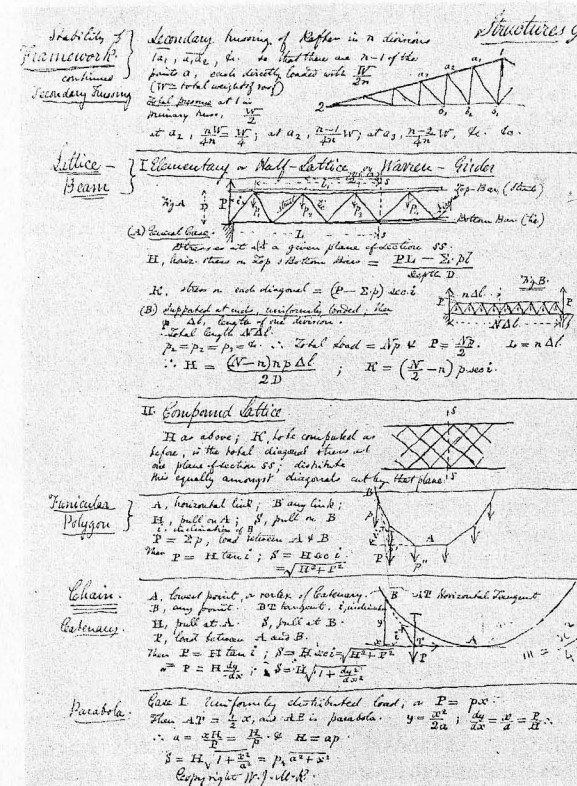 Structures
Stability of
Framework.
continued
Secondary Trussing
Secondary trussing of Rafter in n divisions
1a₁, a₁a₂, &c. so that there are n-1 of the
points a, each directly loaded with W/2n
(W = total weight of roof)
Total pressure at 1 in
primary truss, W/2
at a₂, nW/4n = W/4; at a₂, n-1/4n W; at a₃, n-2/4n W, &c. &c.
Lattice-
Beam
I Elementary or Half-Lattice, or Warren-Girder
Top-Bar (Strut)
Fig. A
Bottom Bar (tie)
L
(A) General Case.
Stresses at a given plane of section SS.
H, horiz. stress on Top & Bottom Bars = PL - Σ.pl / Depth D
K, stress on each diagonal = (P - Σ.p) sec. i
Fig. B.
(B) Supported at ends, uniformly loaded, then
Δl, length of one division.
Total length NΔl.
p₁ = p₂ = p₃ = &c. ∴ Total Load = Np & P = Np/2. L = nΔl
∴ H = (N-n)npΔl / 2D ; K = (N/2 - n) p sec i.
nΔl
NΔl
II. Compound Lattice
H as above; K, to be computed as
before, is the total diagonal stress at
one plane of section SS; distribute
this equally amongst diagonals cut by that plane.
Funicular
Polygon
A, horizontal link; B any link;
H, pull on A; S, pull on B
i, inclination of B
P = Σp, load between A & B
Then P = H tan i; S = H sec i
= √H²+P²
Chain.
Catenary.
A, lowest point, or vertex of Catenary.
B, any point. BT tangent.
AT Horizontal Tangent
H, pull at A. S, pull at B.
P, load between A and B.
Then P = H tan i; S = H sec i = √H²+P²
or P = H dy/dx ; S = H√1 + dy²/dx²
Parabola.
Case I. Uniformly distributed load; or P = px
Then AT = ½x, and AB is parabola. y = x²/2a ; dy/dx = x/a = P/H.
∴ a = xH/P = H/p. & H = ap.
S = H√1 + x²/a² = p√a²+x²
Copyright W.J.M.R.